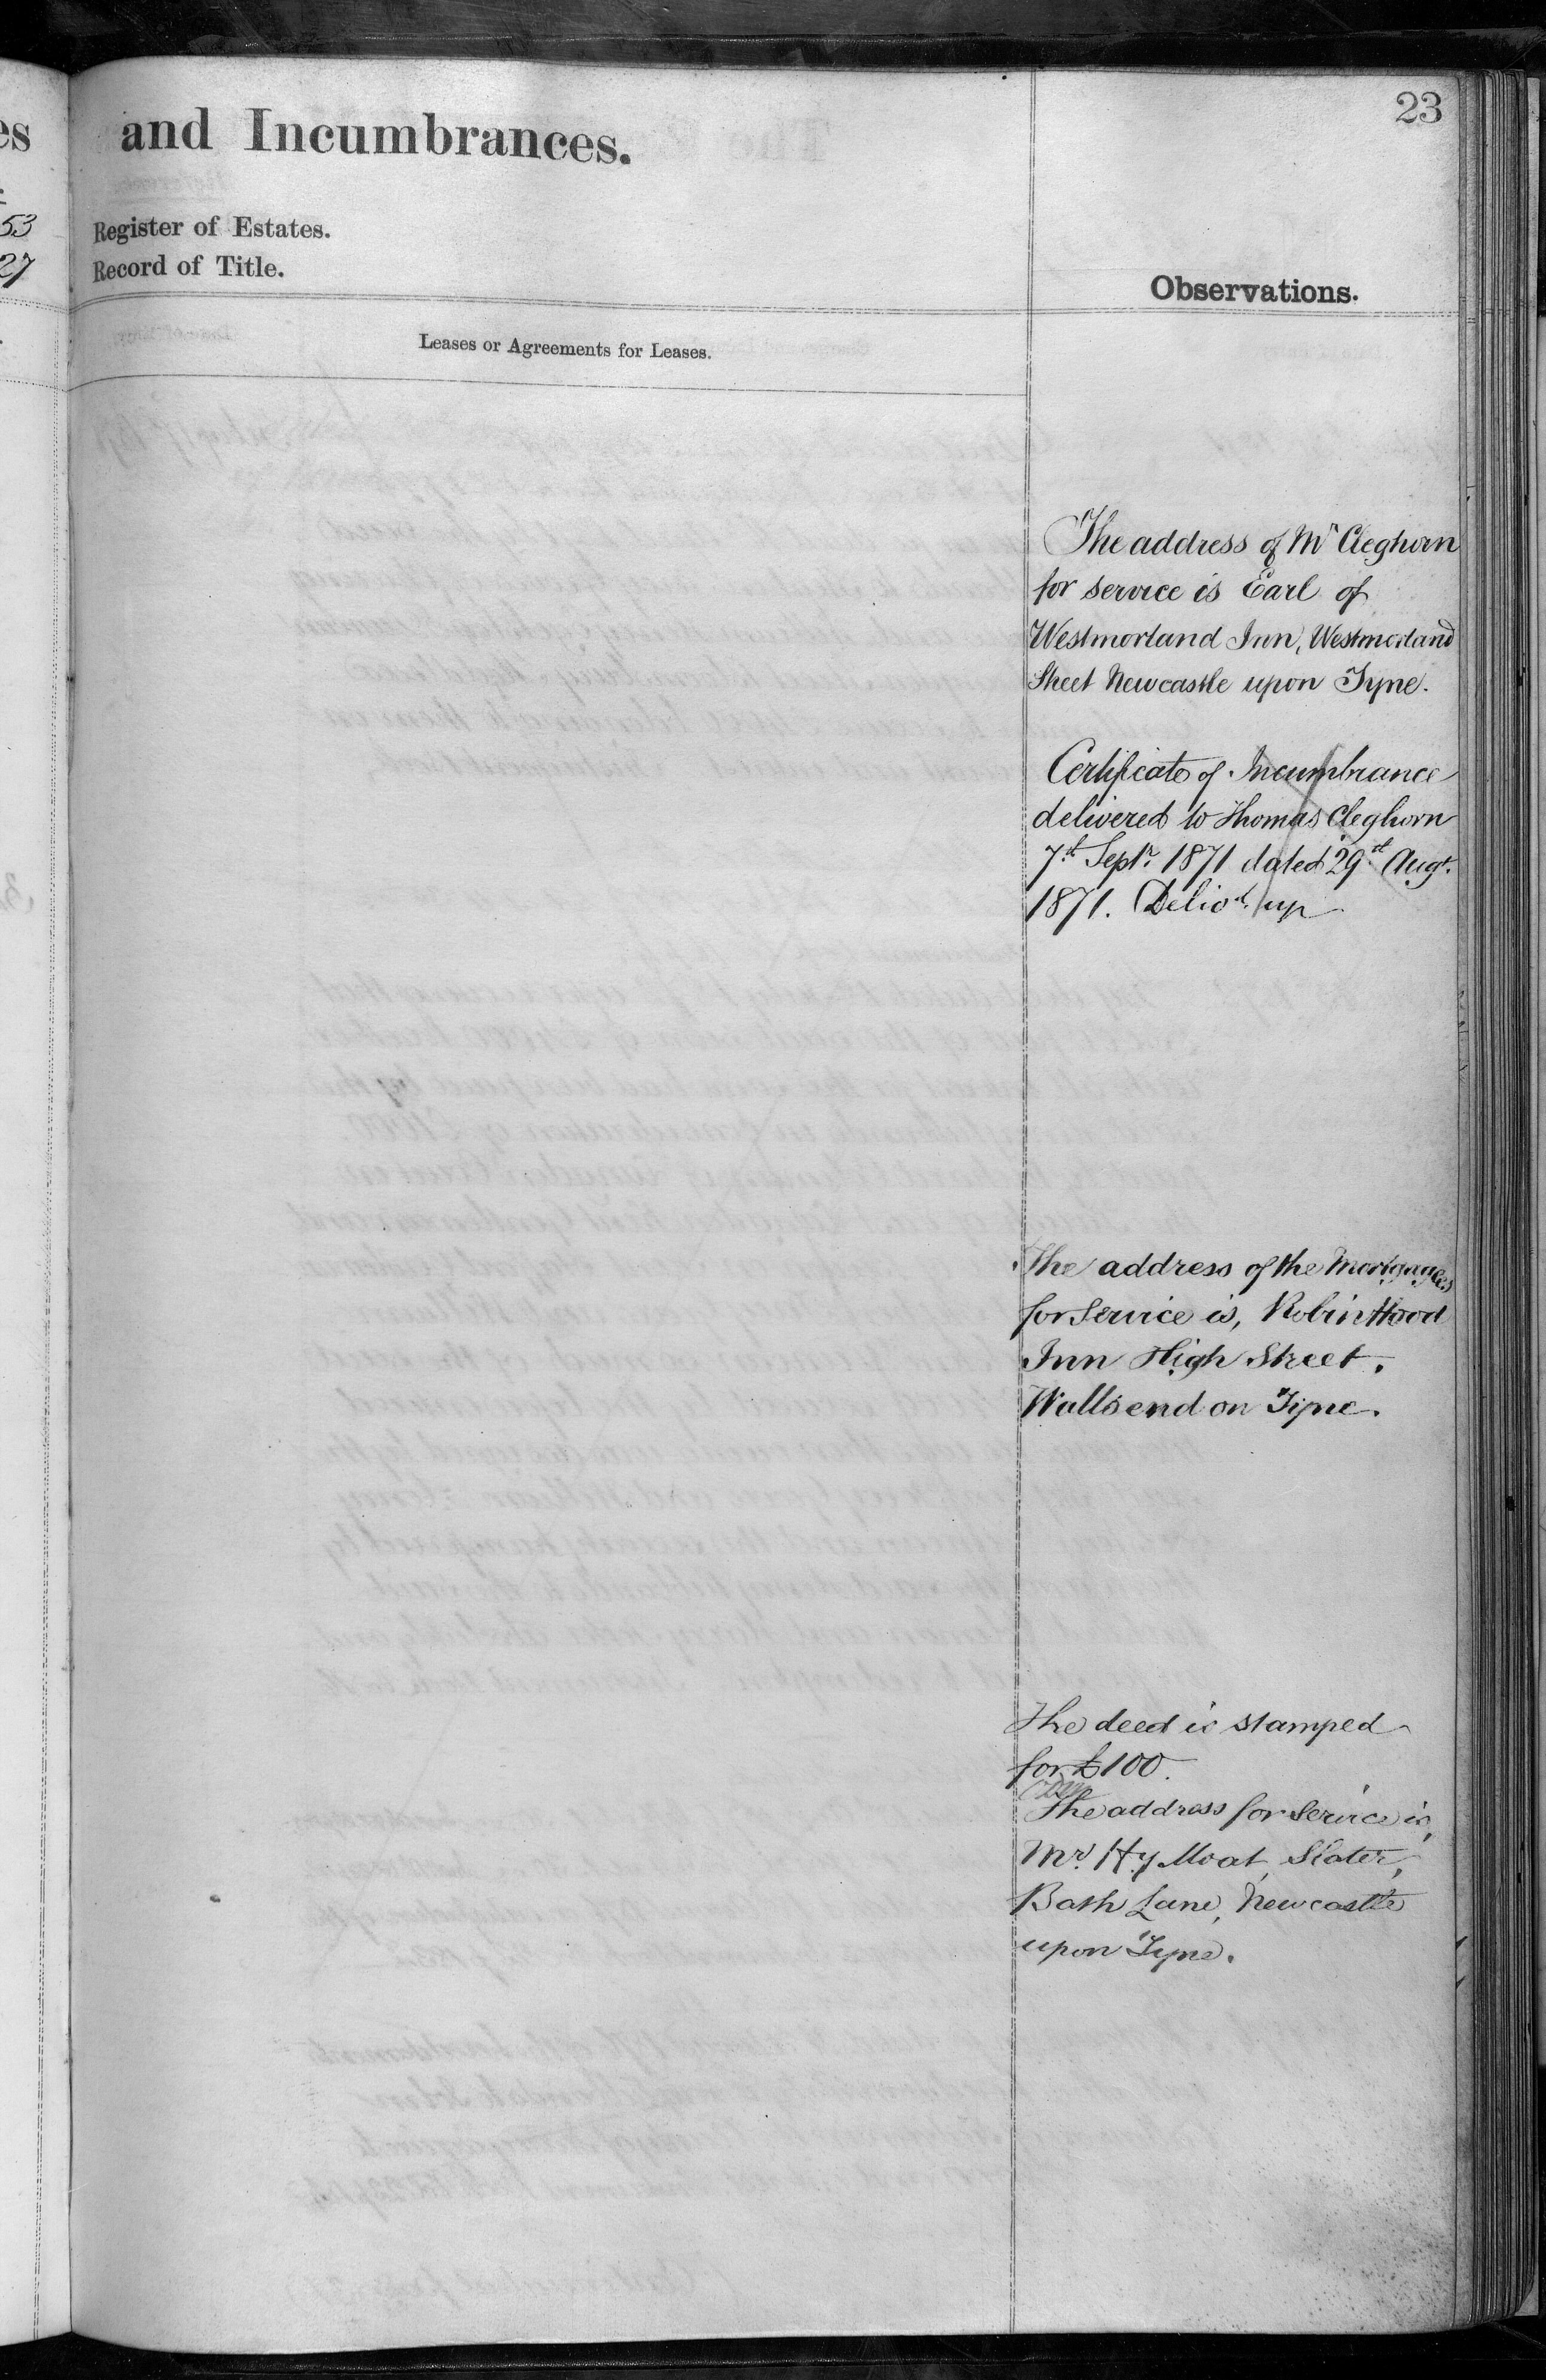 23
es
and Incumbrances.
53
Register of Estates.
27
Record of Title.
Observations.
Leases or Agreements for Leases.
The address of Mr Cleghorn
for service is Earl of
Westmorland Inn, Westmorland
Street Newcastle upon Tyne.
Certificate of Incumbrance
delivered to Thomas Cleghorn
7th Septr. 1871 dated 29th Augt.
1871. Delivd. up
The address of the Mortgagees
for Service is, Robin Hood
Inn High Street.
Wallsend on Tyne.
The deed is stamped
for £100.
The address for Service is,
Mr. Hy Moat, Slater,
Bath Lane, Newcastle
upon Tyne.